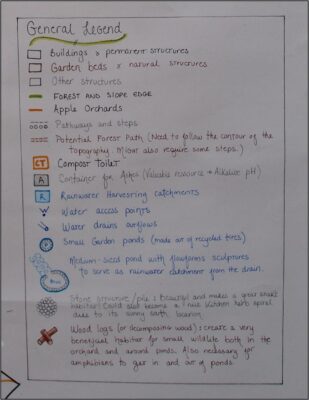 General Legend
Buildings & permanent structures
Garden beds & natural structures
Other structures
FOREST AND SLOPE EDGE
Apple Orchards
Pathways and steps
Potential Forest Path (Need to follow the contour of the
Topography. Might also require some steps.)
CT Compost Toilet
A Container for Ashes (Valuable resource → Alkaline pH)
R Rainwater Harvesting catchments
Water access points
Water drains overflows
Small Garden ponds (made out of recycled tires)
Medium-sized pond with flowforms sculptures
to serve as rainwater catchment from the drain.
Stone structure/pile : Beautiful and makes a great snake
habitat! Could also become a nice kitchen herb spiral
due to its sunny earth location.
Wood logs (or decomposing wood) : create a very
beneficial habitat for small wildlife both in the
orchard and around ponds. Also necessary for
amphibians to get in and out of ponds.